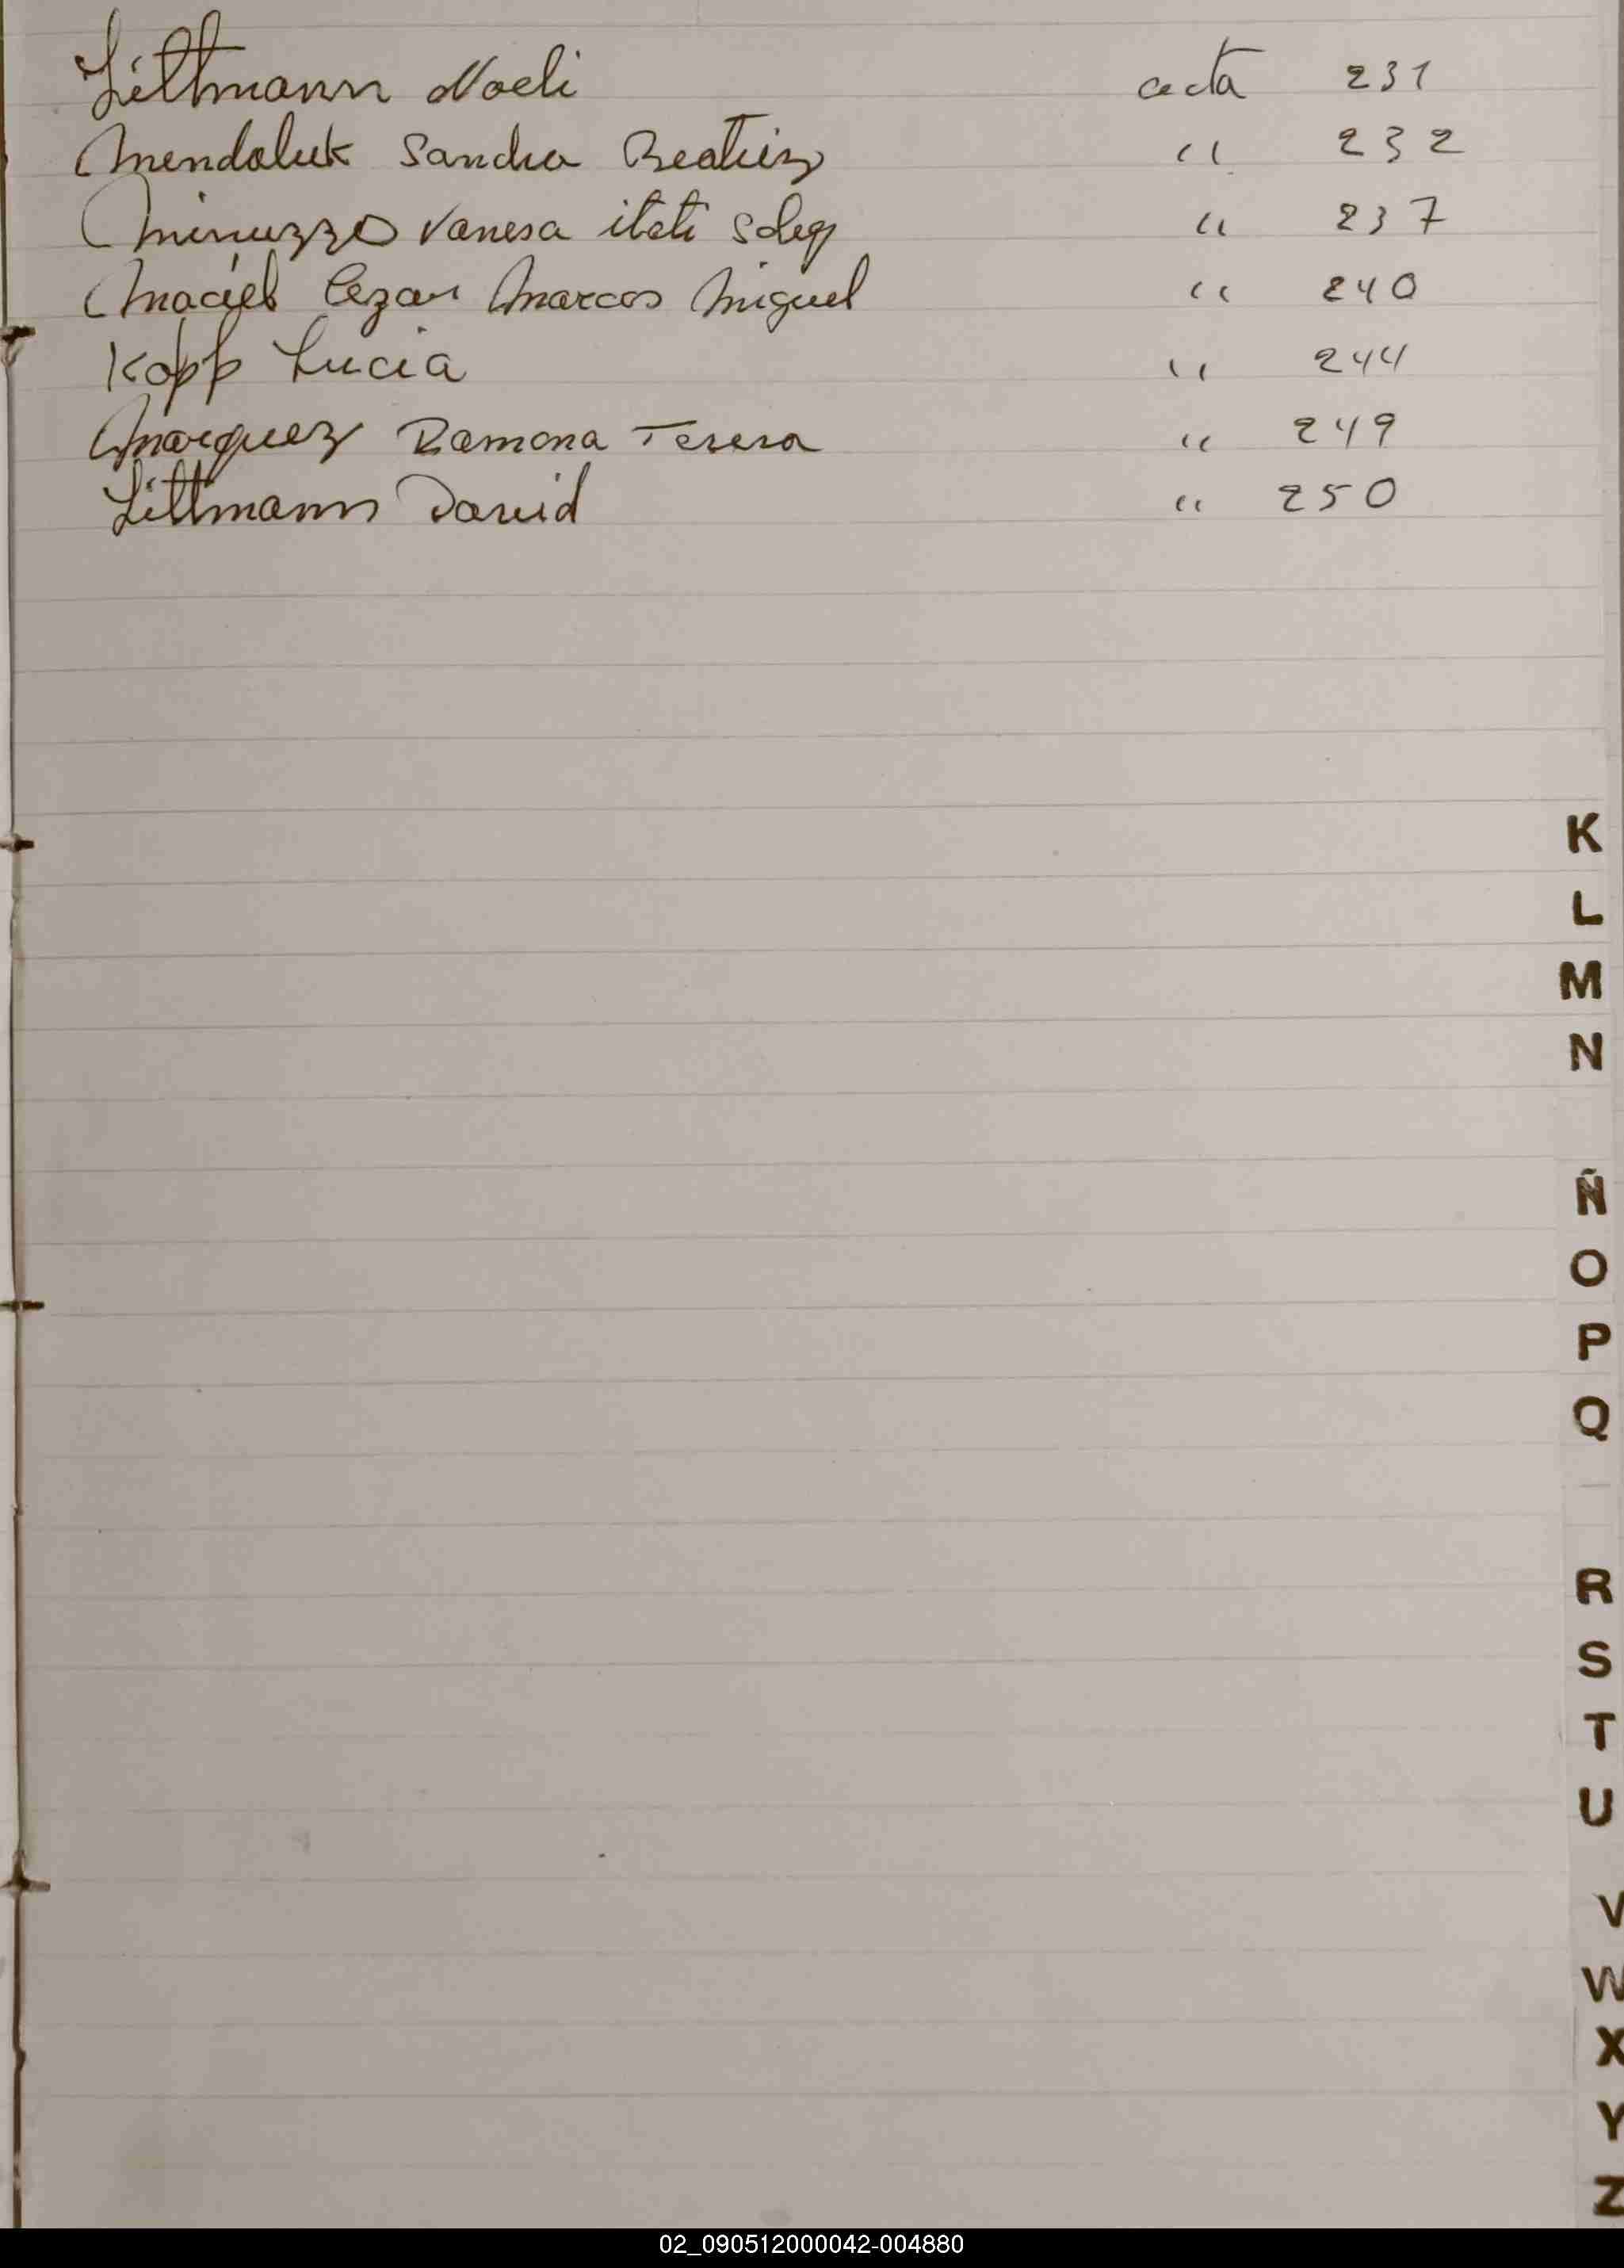 Littmann Noeli acta 231
Mendaluk Sandra Beatriz " 232
Minuzzo Vanesa itati Soleg " 237
Maciel Cezar Marcos Miguel " 240
Kopp Lucia " 244
Marquez Ramona Teresa " 249
Littmann David " 250
K
L
M
N
Ñ
O
P
Q
R
S
T
U
V
W
X
Y
Z
02_090512000042-004880